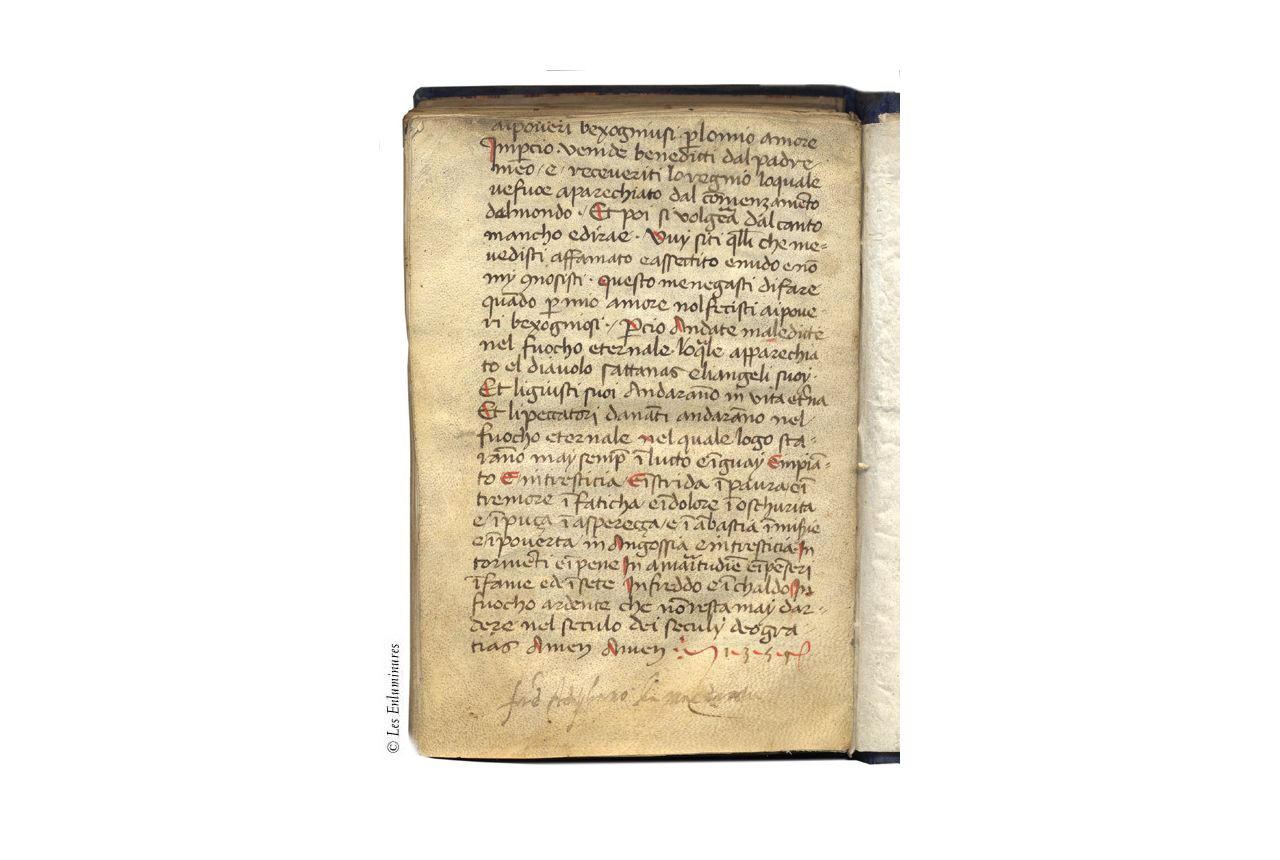 aipoveri bexogniusi p̄ lonnio amore
Inp̄cio · venide beneditti dal padre
meo · e · receveriti lo regnio loquale
ve fuoe aparechiato dal comenzam̄to
dal mondo · Et poi si volḡra dal canto
mancho edirae · Vuy siti q̄lli che me=
vedisti affamato e assettito e nudo e nō
my 9nosisti · questo me negasti di fare
quādo p̄ mio amore nol fecisti ai pove=
ri bexognosi · p̄cio Andate maleditte
nel fuocho eternale loq̄le apparechia
to el diavolo sattanas e liangeli suoy ·
Et li giusti suoi Andarāno in vita et̄na
Et li peccatori danāti andarāno nel
fuocho eternale nel quale logo sta=
rāno may semp̄ ī lutto e ī guay E mpiā=
to E intresticia E ī strida ī paura e ī
tremore ī faticha e ī dolore ī oschurita
e ī puça ī aspereçça e ī abastia ī mis̄ie
e ī poverta in Angossia e intresticia In
torm̄ti e ī pene In amaritudīe e ī pēseri
ī fame ed ī sete In freddo e ī chaldo In
fuocho ardente che nō resta may dar=
dere nel seculo dei seculy deo gra
tias Amen Amen
© Les Enluminures